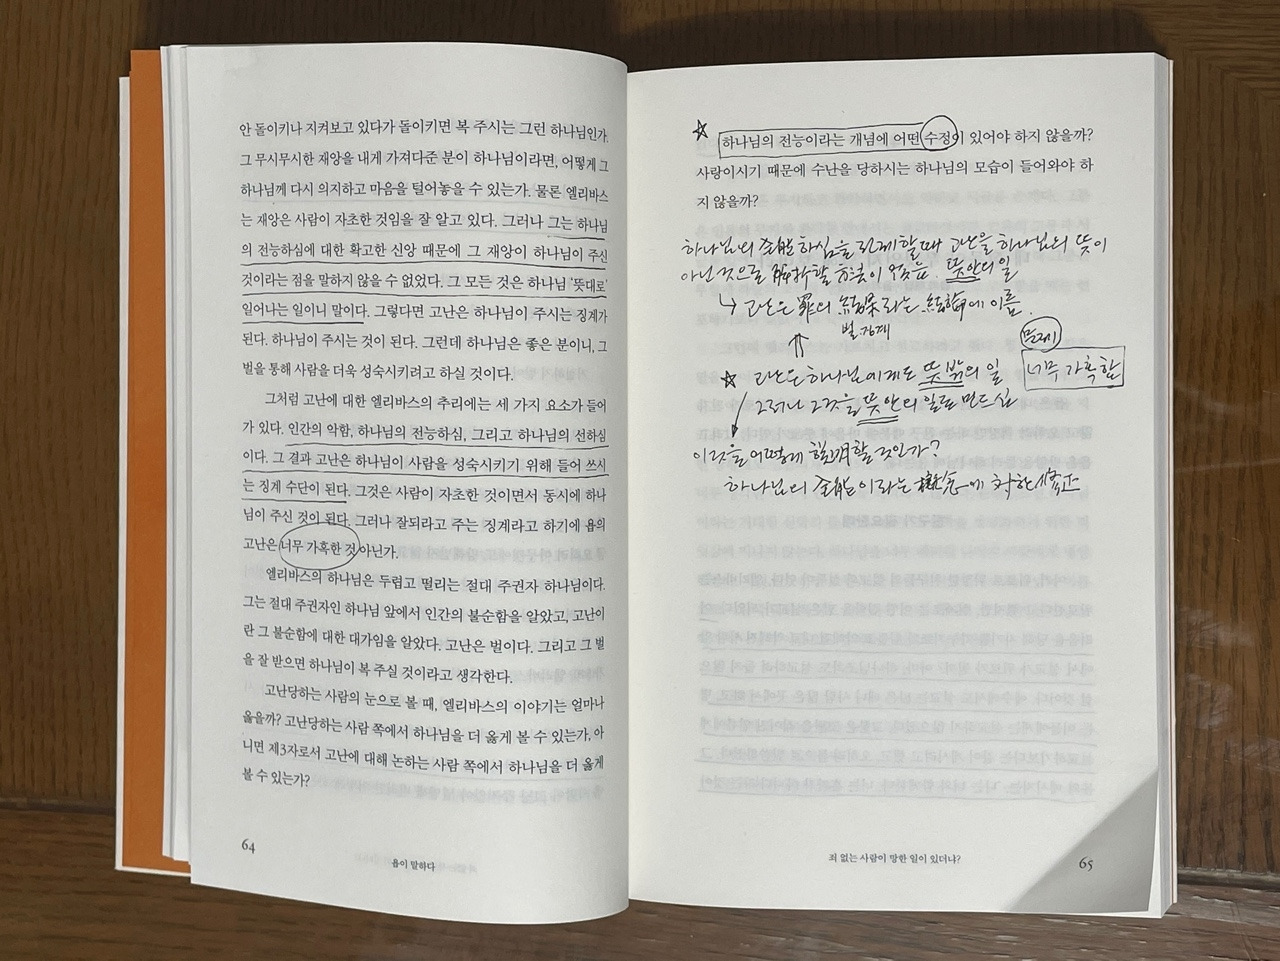 안 돌이키나 지켜보고 있다가 돌이키면 복 주시는 그런 하나님인가.
그 무시무시한 재앙을 내게 가져다준 분이 하나님이라면, 어떻게 그
하나님께 다시 의지하고 마음을 털어놓을 수 있는가. 물론 엘리바스
는 재앙은 사람이 자초한 것임을 잘 알고 있다. 그러나 그는 하나님
의 전능하심에 대한 확고한 신앙 때문에 그 재앙이 하나님이 주신
것이라는 점을 말하지 않을 수 없었다. 그 모든 것은 하나님 '뜻대로'
일어나는 일이니 말이다. 그렇다면 고난은 하나님이 주시는 징계가
된다. 하나님이 주시는 것이 된다. 그런데 하나님은 좋은 분이니, 그
벌을 통해 사람을 더욱 성숙시키려고 하실 것이다.
그처럼 고난에 대한 엘리바스의 추리에는 세 가지 요소가 들어
가 있다. 인간의 악함, 하나님의 전능하심, 그리고 하나님의 선하심
이다. 그 결과 고난은 하나님이 사람을 성숙시키기 위해 들어 쓰시
는 징계 수단이 된다. 그것은 사람이 자초한 것이면서 동시에 하나
님이 주신 것이 된다. 그러나 잘되라고 주는 징계라고 하기에 욥의
고난은 너무 가혹한 것 아닌가.
엘리바스의 하나님은 두렵고 떨리는 절대 주권자 하나님이다.
그는 절대 주권자인 하나님 앞에서 인간의 불순함을 알았고, 고난이
란 그 불순함에 대한 대가임을 알았다. 고난은 벌이다. 그리고 그 벌
을 잘 받으면 하나님이 복 주실 것이라고 생각한다.
고난당하는 사람의 눈으로 볼 때, 엘리바스의 이야기는 얼마나
옳을까? 고난당하는 사람 쪽에서 하나님을 더 옳게 볼 수 있는가, 아
니면 제3자로서 고난에 대해 논하는 사람 쪽에서 하나님을 더 옳게
볼 수 있는가?
64
욥이 말하다
하나님의 전능이라는 개념에 어떤 수정이 있어야 하지 않을까?
사랑이시기 때문에 수난을 당하시는 하나님의 모습이 들어와야 하
지 않을까?
하나님의 全能하심을 전제할 때 고난을 하나님의 뜻이
아닌 것으로 解析할 方法이 없음. 뜻 안의 일
↳ 고난은 罪의 結果라는 結論에 이름.
벌.징계
문제
☆ 고난은 하나님에게도 뜻 밖의 일
너무 가혹함
그러나 그것을 뜻 안의 일로 만드심
이것을 어떻게 說明할 것인가?
하나님의 全能이라는 槪念에 약한 修正
죄 없는 사람이 망한 일이 있더냐?
65